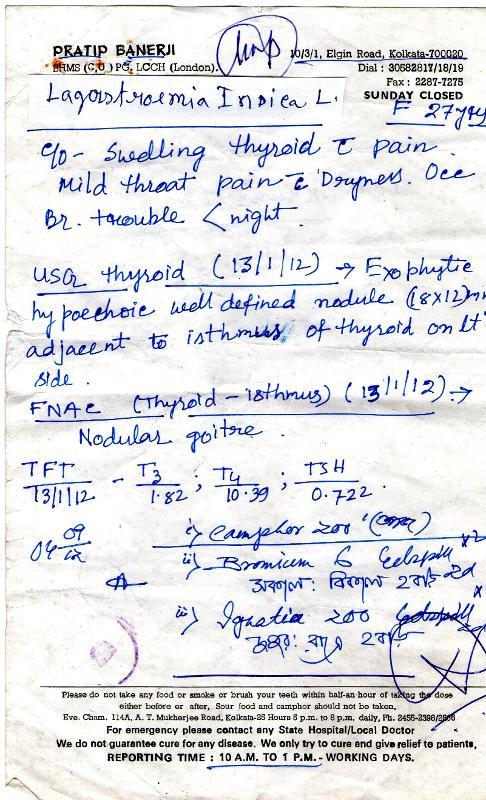 PRATIP BANERJI
BHMS (C.U) PG, LCCH (London).
10/3/1, Elgin Road, Kolkata-700020
Dial : 30682817/18/19
Fax : 2287-7275
SUNDAY CLOSED
Lagerstroemia Indica L.
F 27 yrs
c/o - Swelling thyroid c̄ pain.
Mild throat pain c̄ Dryness. Occ
Br. trouble < night.
USG thyroid (13/1/12) → Exophytic
hypoechoic well defined nodule (18x12)mm
adjacent to isthmus of thyroid on Lt
side.
FNAC (Thyroid - isthmus) (13/1/12) →
Nodular goitre.
TFT 13/1/12 - T3 1.82 ; T4 10.39 ; TSH 0.722.
i) Camphor 200
ii) Bromium 6
সকাল: বিকাল ২ বড়ি
iii) Ignatia 200
২ বড়ি
Please do not take any food or smoke or brush your teeth within half-an hour of taking the dose
either before or after, Sour food and camphor should not be taken.
Eve. Cham. 114A, A. T. Mukherjee Road, Kolkata-26 Hours 6 p.m. to 8 p.m. daily, Ph. 2455-2396/
For emergency please contact any State Hospital/Local Doctor
We do not guarantee cure for any disease. We only try to cure and give relief to patients,
REPORTING TIME : 10 A.M. TO 1 P.M. - WORKING DAYS.